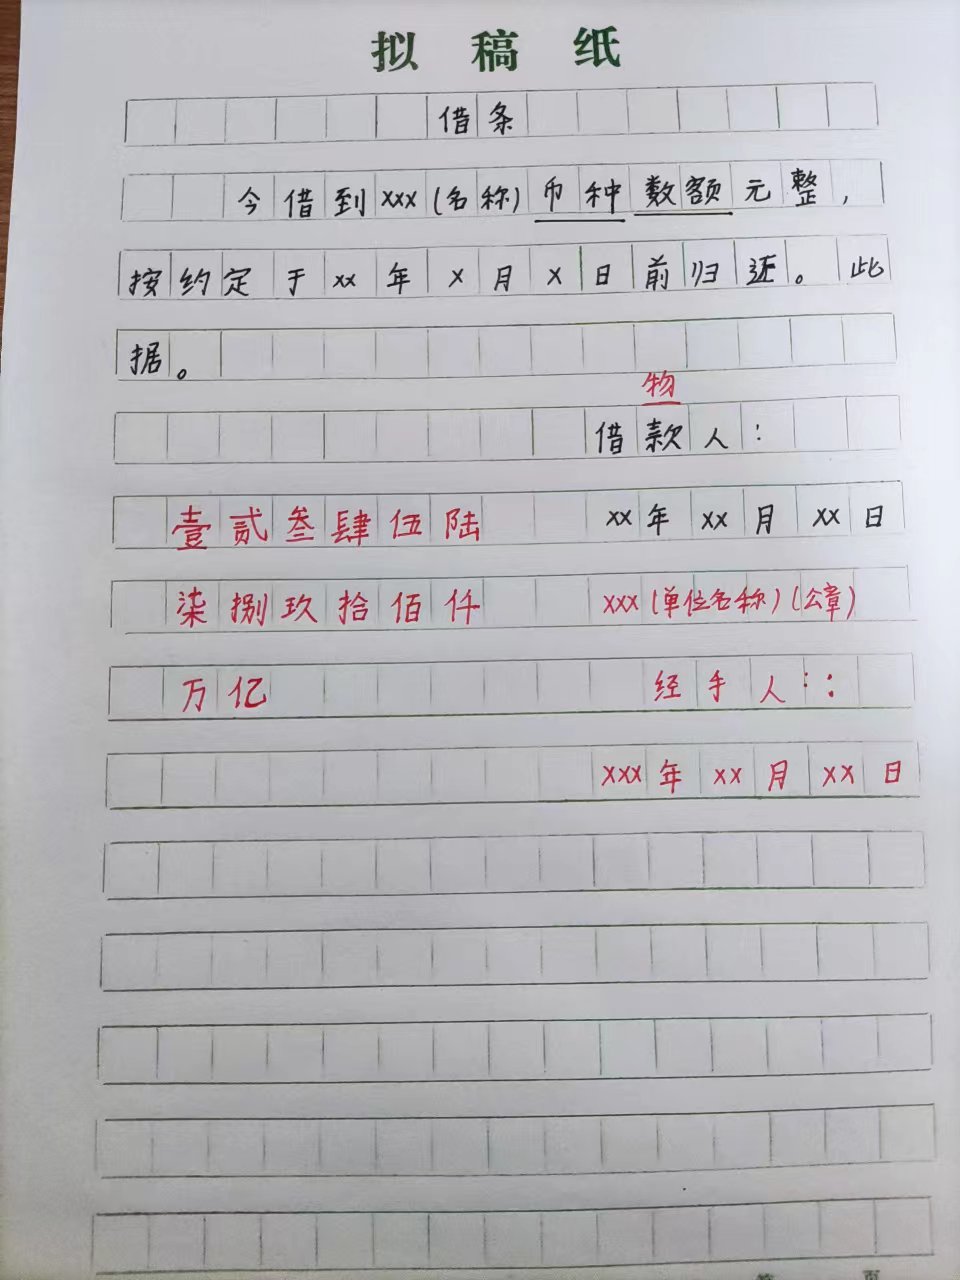 拟稿纸
借条
今借到xxx(名称)币种数额元整,
按约定于xx年x月x日前归还。此
据。
物
借款人:
壹贰叁肆伍陆 xx年xx月xx日
柒捌玖拾佰仟 xxx(单位名称)(公章)
万亿 经手人::
xxx年xx月xx日